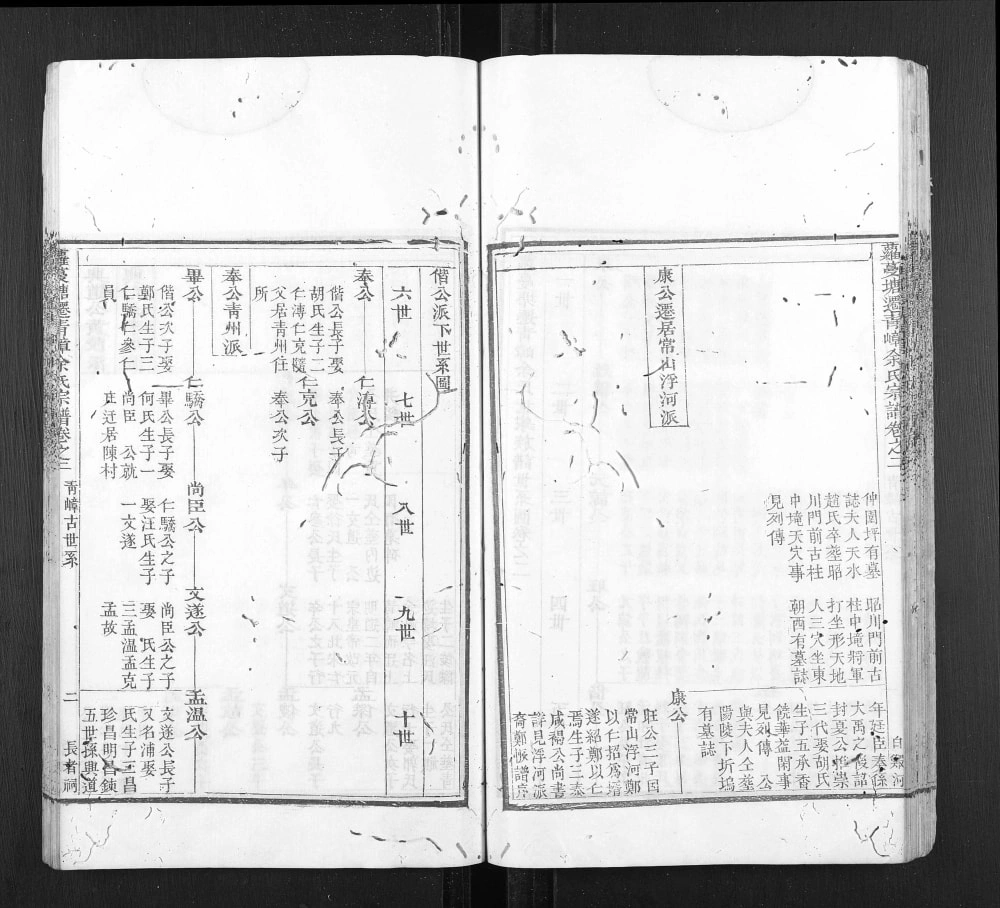 蘿蔓塘遷青嶂余氏宗譜卷之二
伸園坪有墓
誌夫人天水
趙氏卒塟昭
川門前古柱
中墥天穴事
見列傳
昭川門前古
柱中墥將軍
打坐形天地
人三穴坐東
朝西有墓誌
年廷臣奏係
大禹之後詔
封夏公準崇
三代娶胡氏
生子五承香
饒華益閑事
見列傳 公
與夫人仝塟
陽陵下圻塢
有墓誌
康公遷居常山浮河派
康公
駐公三子因
常山浮河鄭
以仁招為壻
遂紹鄭以仁
焉生子三泰
咸禓公尚書
詳見浮河派
裔鄭帳譜序
偕公派下世系圖
六世
七世
八世
九世
十世
奉公
偕公長子娶
胡氏生子二
仁溥仁克隨
父居青州住
所
仁溥公
奉公長子
仁克公
奉公次子
奉公青州派
畢公
偕公次子娶
鄭氏生子三
仁驕仁參仁
員
仁驕公
畢公長子娶
何氏生子一
尚臣 公就
庄迁居陳村
尚臣公
仁驕公之子
娶汪氏生子
一文遂
文遂公
尚臣公之子
娶 氏生子
三孟溫孟克
孟故
孟溫公
文遂公長子
又名浦娶
氏生子三昌
珍昌明昌錬
五世孫興道
蘿蔓塘遷青嶂余氏宗譜卷之三
青嶂古世系
二
長者祠